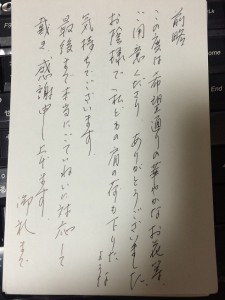 前略
この度は希望通りの華やかなお花第
ご用意くださり、ありがとうございました。
お陰様で私どもの肩の荷も下りたような
気持ちでございます。
最後まで本当にていねいに対応して
戴き感謝申し上げます。
御礼まで